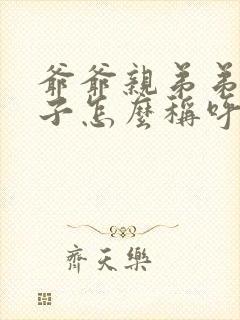 爺爺親弟弟
子怎麼稱呼
齊天樂